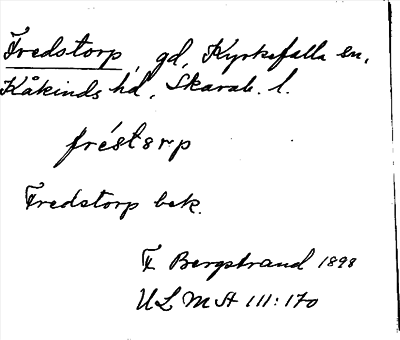 Fredstorp, gd, Kyrkefalla sn,
Kåkinds hd, Skarab. l.
fréstɜrp
Fredstorp bek.
F Bergstrand 1898
ULMA 111:170